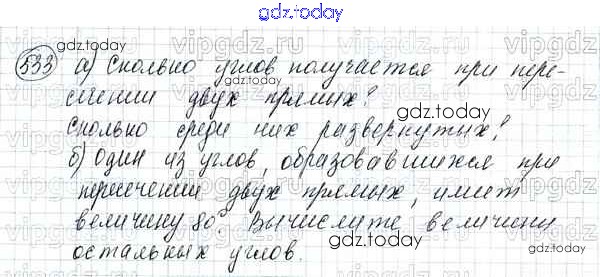 gdz.today
533 а) Сколько углов получается при пере-
сечении двух прямых?
Сколько среди них развернутых?
б) Один из углов, образовавшихся при
пересечении двух прямых, имеет
величину 80°. Вычислите величины
остальных углов.
gdz.today
gdz.today
gdz.today
gdz.today
gdz.today